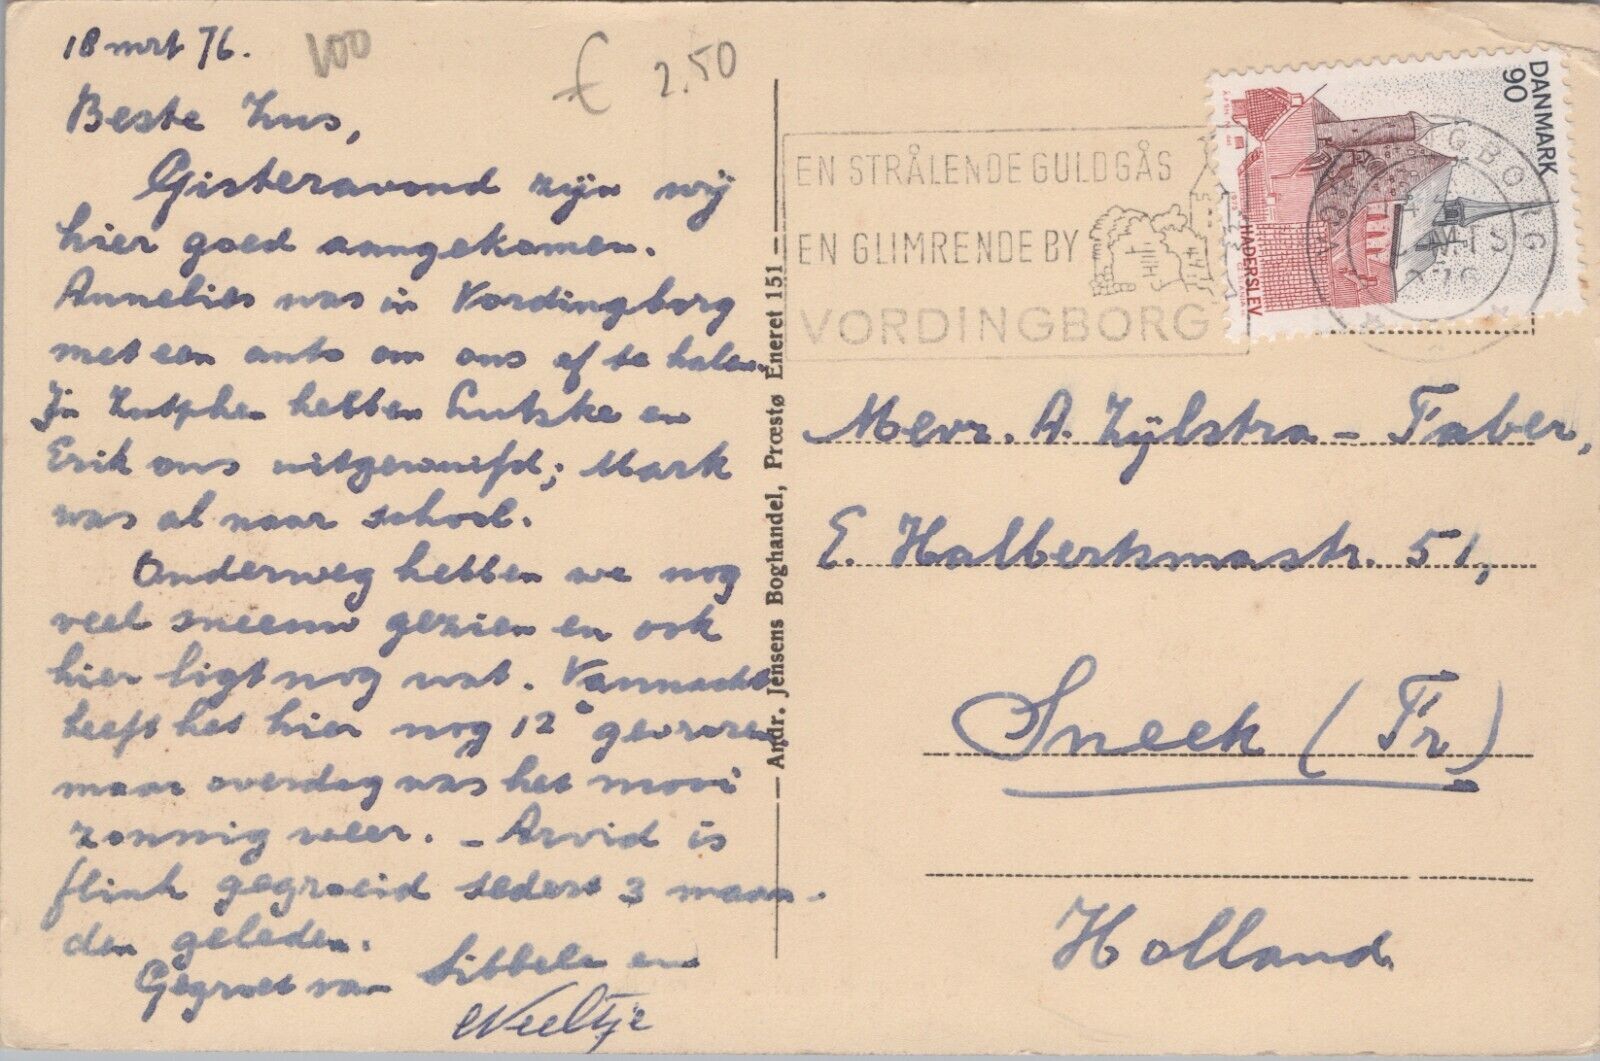 18 mrt 76.
100
€ 2.50
Beste Zus,
Gisteravond zijn wij
hier goed aangekomen.
Annelies was in Vordingborg
met een auto om ons af te halen.
In Zutphen hebben Lutske en
Erik ons uitgewuifd; Mark
was al naar school.
Onderweg hebben we nog
veel sneeuw gezien en ook
hier ligt nog wat. Vannacht
heeft het hier nog 12° gevroren
maar overdag was het mooi
zonnig weer. - Arvid is
flink gegroeid sedert 3 maan-
den geleden.
Gegroet van Sibbele en
Weeltje
Andr. Jensens Boghandel, Præstø Eneret 151
EN STRÅLENDE GULDGÅS
EN GLIMRENDE BY
VORDINGBORG
DANMARK
90
HADERSLEV
1976
Mevr. A. Zijlstra - Faber,
E. Halbertsmastr. 51,
Sneek (Fr)
Holland